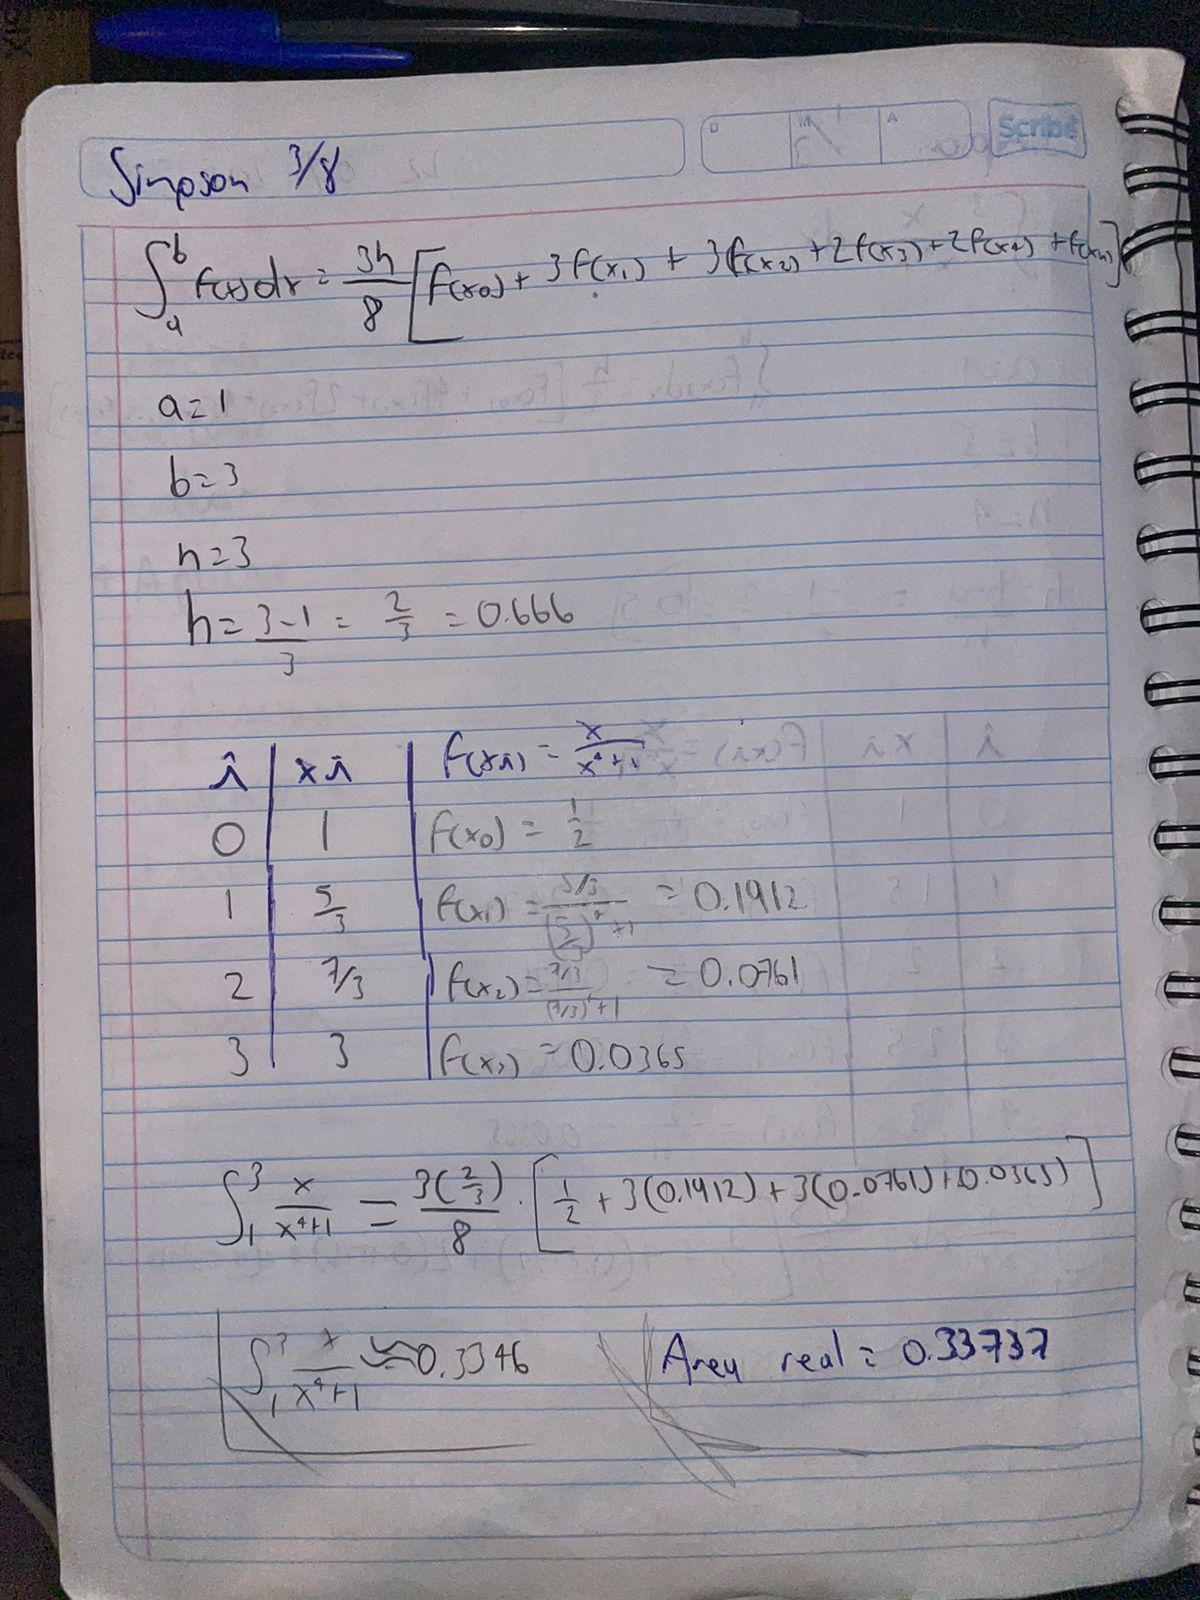 D M A Scribe
Simpson 3/8
∫_a^b f(x)dx = 3h/8 [f(x₀) + 3f(x₁) + 3f(x₂) + 2f(x₃) + 2f(x₄) + f(xₙ)]
a=1
b=3
n=3
h = 3-1/3 = 2/3 = 0.666
i | xi | f(xi) = x/x⁴+1
0 | 1 | f(x₀) = 1/2
1 | 5/3 | f(x₁) = 5/3/(5/3)⁴+1 = 0.1912
2 | 7/3 | f(x₂) = 7/3/(7/3)⁴+1 = 0.0761
3 | 3 | f(x₃) = 0.0365
∫_1^3 x/x⁴+1 = 3(2/3)/8 · [1/2 + 3(0.1912) + 3(0.0761) + 0.0365)]
∫_1^3 x/x⁴+1 ≈ 0.3346 Area real = 0.33737